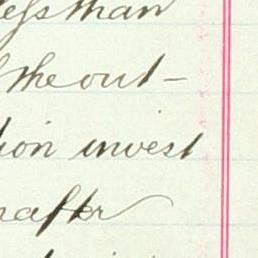 less than
the out-
tion invest
hafter